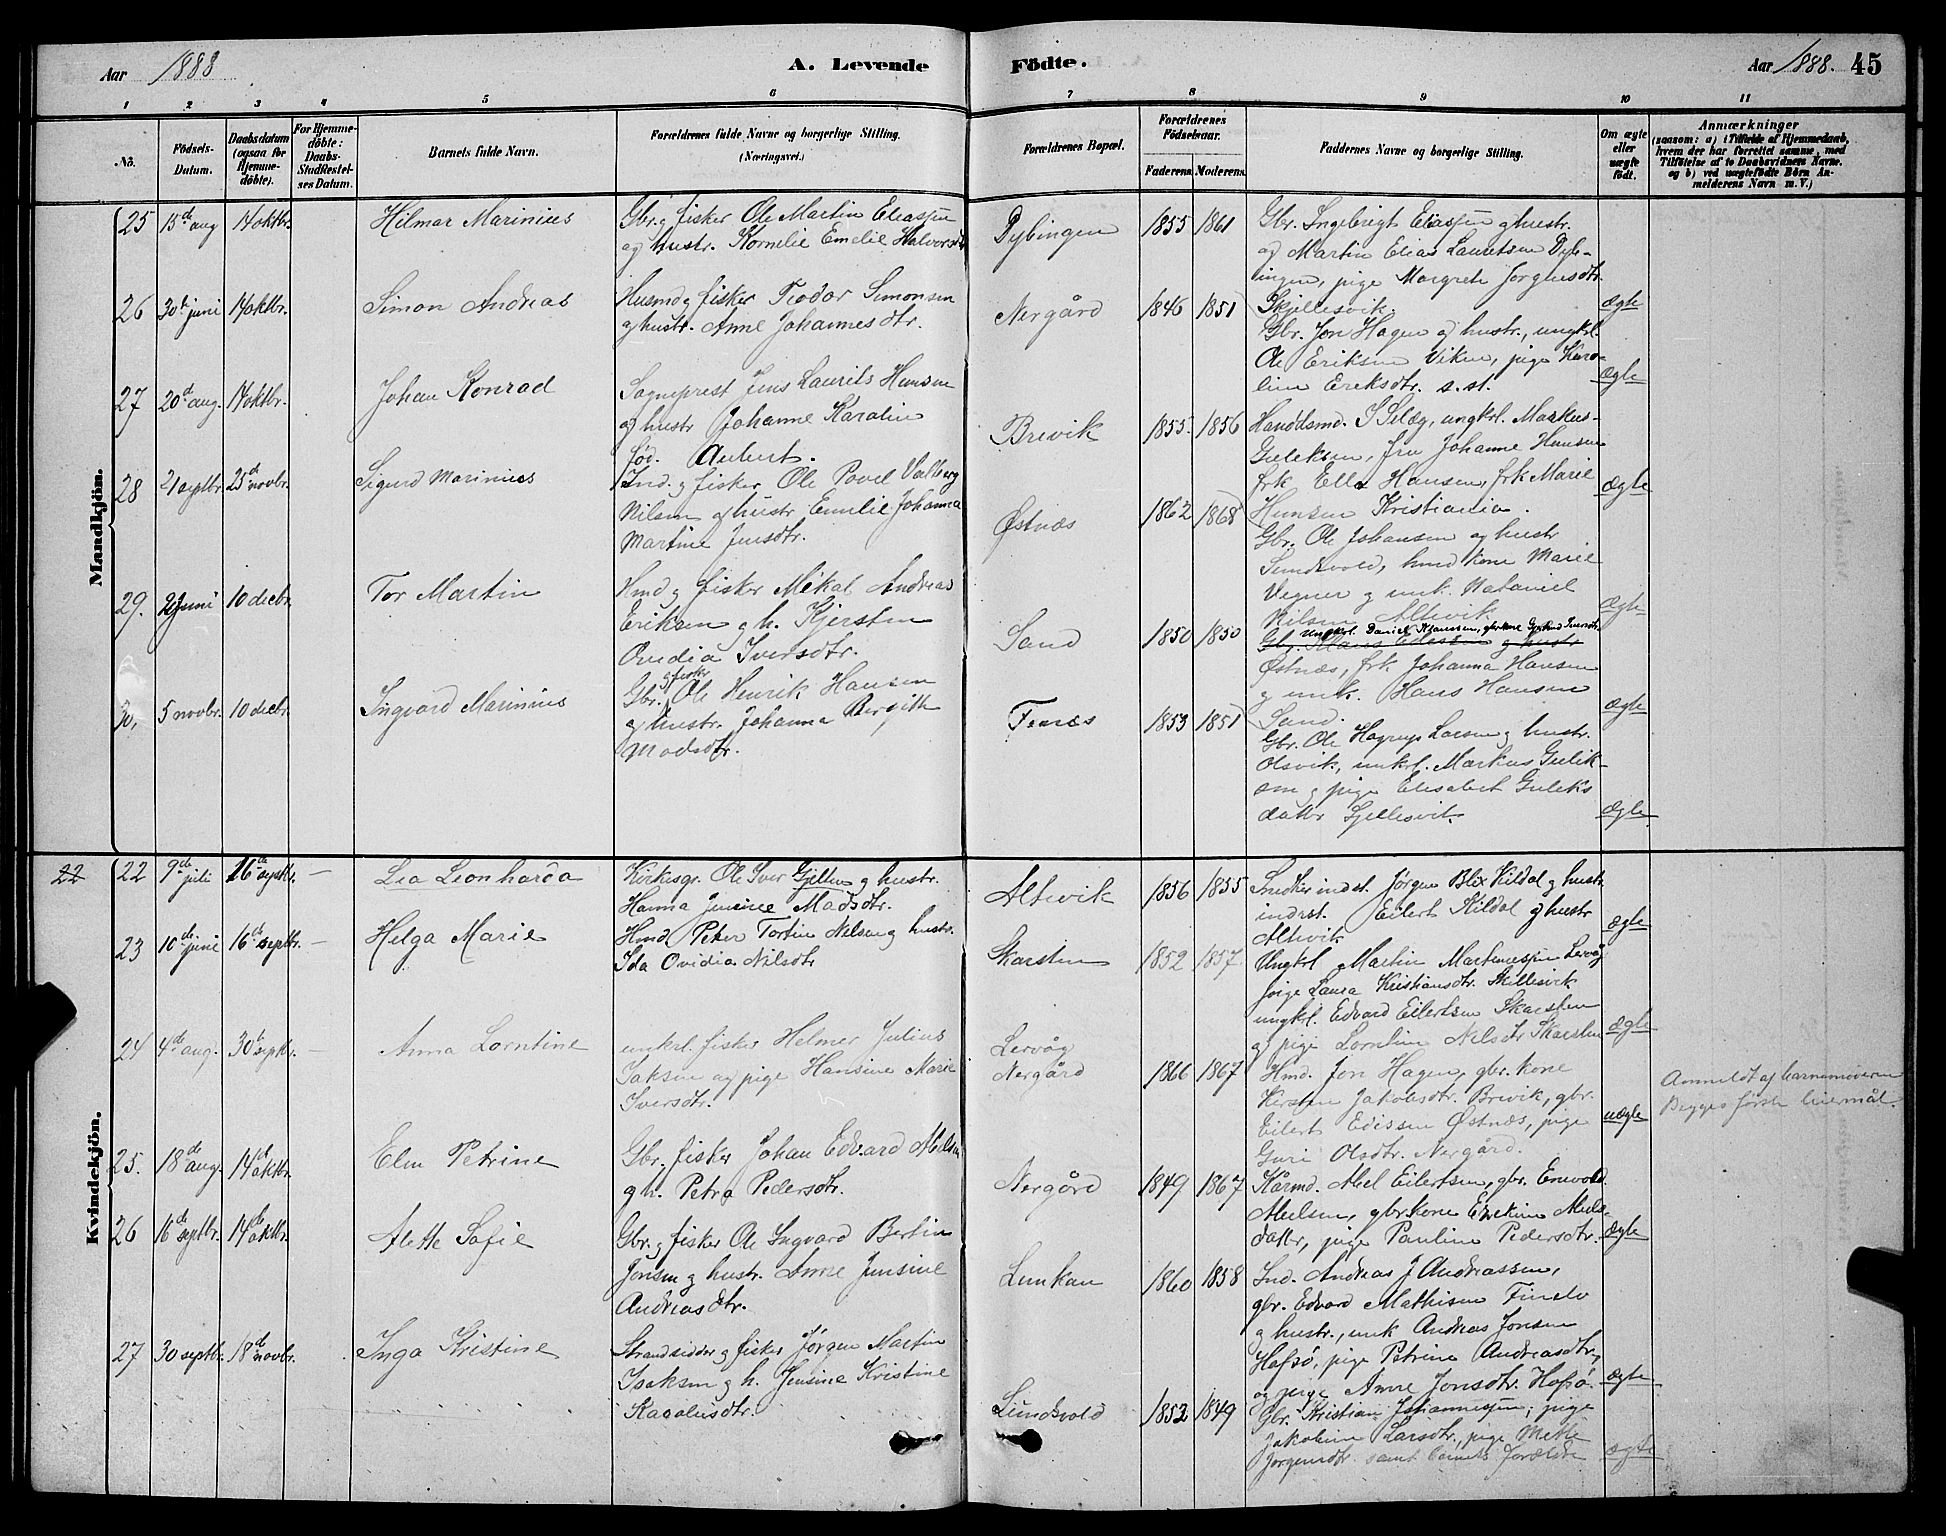 Aar 1888
A. Levende
Födte.
Aar 1888. 45
1 2 3 4 5 6 7 8 9 10 11
No.
Födsels-
Datum.
Daabsdatum
(ogsaa for
Hjemme-
döbte).
For Hjemme-
döbte:
Daabs-
Stadfæstel-
ses Datum.
Barnets fulde Navn.
Forældrenes fulde Navne og borgerlige Stilling.
(Næringsvei.)
Forældrenes Bopæl.
Forældrenes
Födselsaar.
Faderens. Moderens.
Faddernes Navne og borgerlige Stilling.
Om ægte
eller
uægte
födt.
Anmærkninger
(saasom: a) i Tilfælde af Hjemmedaab,
hvem der har forrettet samme, med
Tilföielse af to Daabsvidners Navne.
og b) ved uægtefödte Börn An-
melderens Navn m. V.)
Mandkjön.
25 15de aug 14 oktbr. Hilmar Marinius
Gbr. og fisker Ole Martin Eliassen
og hustr. Kornelie Emelie Halvorsdtr
Dybingen 1855 1861
Gbr. Ingebrigt Eliassen og hustr.
og Martin Elias Lauritsen Dyb-
ingen, pige Margrete Jørghusdtr.
Skjellesvik.
ægte
26 30de juni 14 oktbr. Simon Andreas
Husmd og fisker Teodor Simonsen
og hustr. Anne Johannesdtr.
Nergård 1846 1851
Gbr. Jon Hagen og hustr., ungkrl.
Ole Eriksen Viken, pige Karo-
line Ereksdtr. s. st.
ægte
27 20de aug. 14 oktbr. Johan Konrad
Sogneprest Jens Laurits Hansen
og hustr Johanne Karoline
fød. Aubert.
Brevik 1855. 1856
Handdsmd. S Selæg, ungkrl. Markus
Guleksen, fru Johanne Hansen
frk Ella Hansen, frk Marie
Hansen Kristiania.
ægte
28 21 septbr. 25de novbr. Sigurd Marinius
Ind. og fisker Ole Povel Valberg
Nilsen og hustr Emilie Johanna
Martine Jensdtr.
Østnæs 1862 1868
Gbr. Ole Johansen og hustr
Sundsvold, husmd kone Marie
Vegner og unk. Nataniel
Nilsen Altevik
ægte
29. 21 juni 10 decbr. Tor Martin
Hmd og fisker Mikal Andreas
Eriksen og h. Kjersten
Ovidia Iversdtr.
Sand 1850 1850
Ungkrl. Daniel Klaussen, gbr kone Gjertrud Iversdtr.
Østnæs, frk. Johanna Hansen
og unk. Hans Hansen
Sand.
ægte
30, 5 novbr. 10 decbr. Ingvard Marinius
og fisker
Gbr. Ole Henrik Hansen
og hustr. Johanna Bergitte
Madsdtr.
Finnes 1853 1851
Gbr. Ole Hagrup Larsen og hustr.
Olsvik, unkrl. Markus Gulik-
sen og pige Elisabet Guleks
datter Sjellesvik.
ægte
Kvindekjön.
22 22 9de juli 16de septbr. — Lea Leonharda
Kirkesgr. Ole Iver Gjelten og hustr.
Hanna Jensine Madsdtr.
Altevik 1856 1855
Snedker indst. Jørgen Blix Kildal og hustr
indrst. Eilert Kildal og hustr
Altevik
ægte
23 10de juni 16de septbr. — Helga Marie
Hmd Peter Tortin Nilsen og hustr.
Ida Ovidia Nilsdtr
Skarsten 1852 1857
Ungkrl Martin Martinussen Lervåg
pige Laura Kristiansdtr. Skillesvik
ungkrl. Edvard Eilertsen Skarsten
og pige Lorntine Nilsdtr Skarsten
ægte
24 4de aug. 30te septbr. — Anna Lorntine
unkrl. fisker Helmer Julius
Isaksen og pige Hansine Marie
Iversdtr.
Lervåg
Nergård 1866 1867
Hmd. Jon Hagen, gbr. kone
Kersten Jakobsdtr. Brevik, gbr.
Eilert Edissen Østnæs, pige
Guri Olsdtr. Nergård.
uægte
Anmeldt af barnemoderen
Begges første leiermål.
25. 18de aug. 14de oktbr. Elen Petrine
Gbr. fisker Johan Edvard Melsen
og h. Petra Pedersdtr.
Nergård 1849 1867
Kårmd. Abel Eilertsen, gbr. Enevold
Abelsen, gbr. kone Elrekine Abels-
datter, pige Pauline Pedersdtr.
ægte
26 16de septbr. 14de oktbr. Alette Sofie
Gbr. og fisker Ole Ingvard Bertin
Jonsen og hustr. Anne Jensine
Andreasdtr.
Lunkan 1860 1858
Ind. Andreas J Andreassen,
gbr. Edvard Mathisen Finelv
og hustr., unk Andreas Jonsen
Hafsø, pige Petrine Andreasdtr,
og pige Anne Jonsdtr. Hofsø.
ægte
27 30 septbr. 18de novbr. Inga Kristine
Strandsidder og fisker Jørgen Martin
Isaksen og h. Jensine Kristine
Karolusdtr.
Sundsvold 1852 1849
Gbr. Kristian Johannessen, pige
Jakobine Larsdtr., pige Mette
Jørgensdtr. samt barnets forældre
ægte